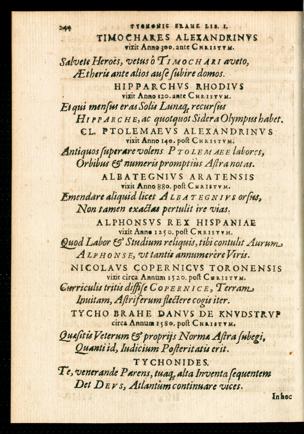 244 TYCHONIS BRAHE LIB. I.
TIMOCHARES ALEXANDRINVS
vixit Anno 300. ante CHRISTVM.
Salvete Heroës, vetus ô TIMOCHARI aveto,
Ætheris ante alios ause subire domos.
HIPPARCHUS RHODIVS
vixit Anno 120. ante CHRISTVM.
Et qui mensus eras Solis Lunæq, recursus
HIPPARCHE, ac quotquot Sidera Olympus habet.
CL. PTOLEMAEVS ALEXANDRINVS
vixit Anno 140. post CHRISTVM.
Antiquos superare volens PTOLEMAEE labores,
Orbibus & numeris promptius Astra notas.
ALBATEGNIVS ARATENSIS
vixit Anno 880. post CHRISTVM.
Emendare aliquid licet ALBATEGNIVS orsus,
Non tamen exactas pertulit ire vias.
ALPHONSVS REX HISPANIAE
vixit Anno 1250. post CHRISTVM.
Quod Labor & Studium reliquis, tibi contulit Aurum
ALPHONSE, vt tantis annumerêre Viris.
NICOLAVS COPERNICVS TORONENSIS
vixit circa Annum 1520. post CHRISTVM.
Curriculis tritis diffise COPERNICE, Terram
Invitam, Astriferum flectere cogis iter.
TYCHO BRAHE DANVS DE KNVDSTRVP
circa Annum 1580. post CHRISTVM.
Quæsitis Veterum & proprijs Norma Astra subegi,
Quanti id, Iudicium Posteritatis erit.
TYCHONIDES.
Te, venerande Parens, tuaq, alta Inventa sequentem
Det DEVS, Atlantium continuare vices.
In hoc